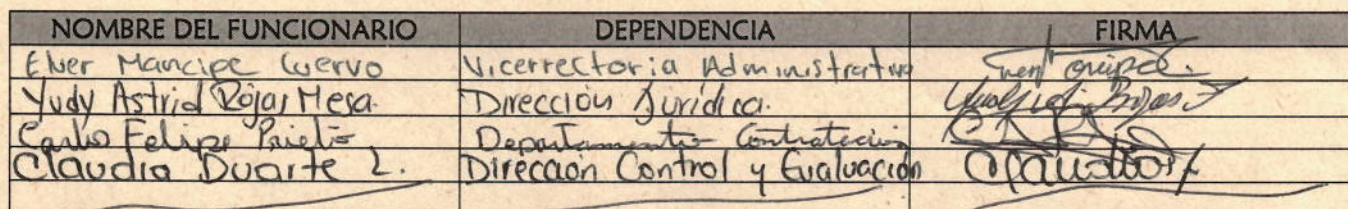 NOMBRE DEL FUNCIONARIO DEPENDENCIA FIRMA
Elver Mancipe Cuervo Vicerrectoria Administrativa
Yudy Astrid Rojas Mesa. Dirección Jurídica.
Carlos Felipe Prieto Departamento Contratación
Claudia Duarte L. Dirección Control y Evaluación